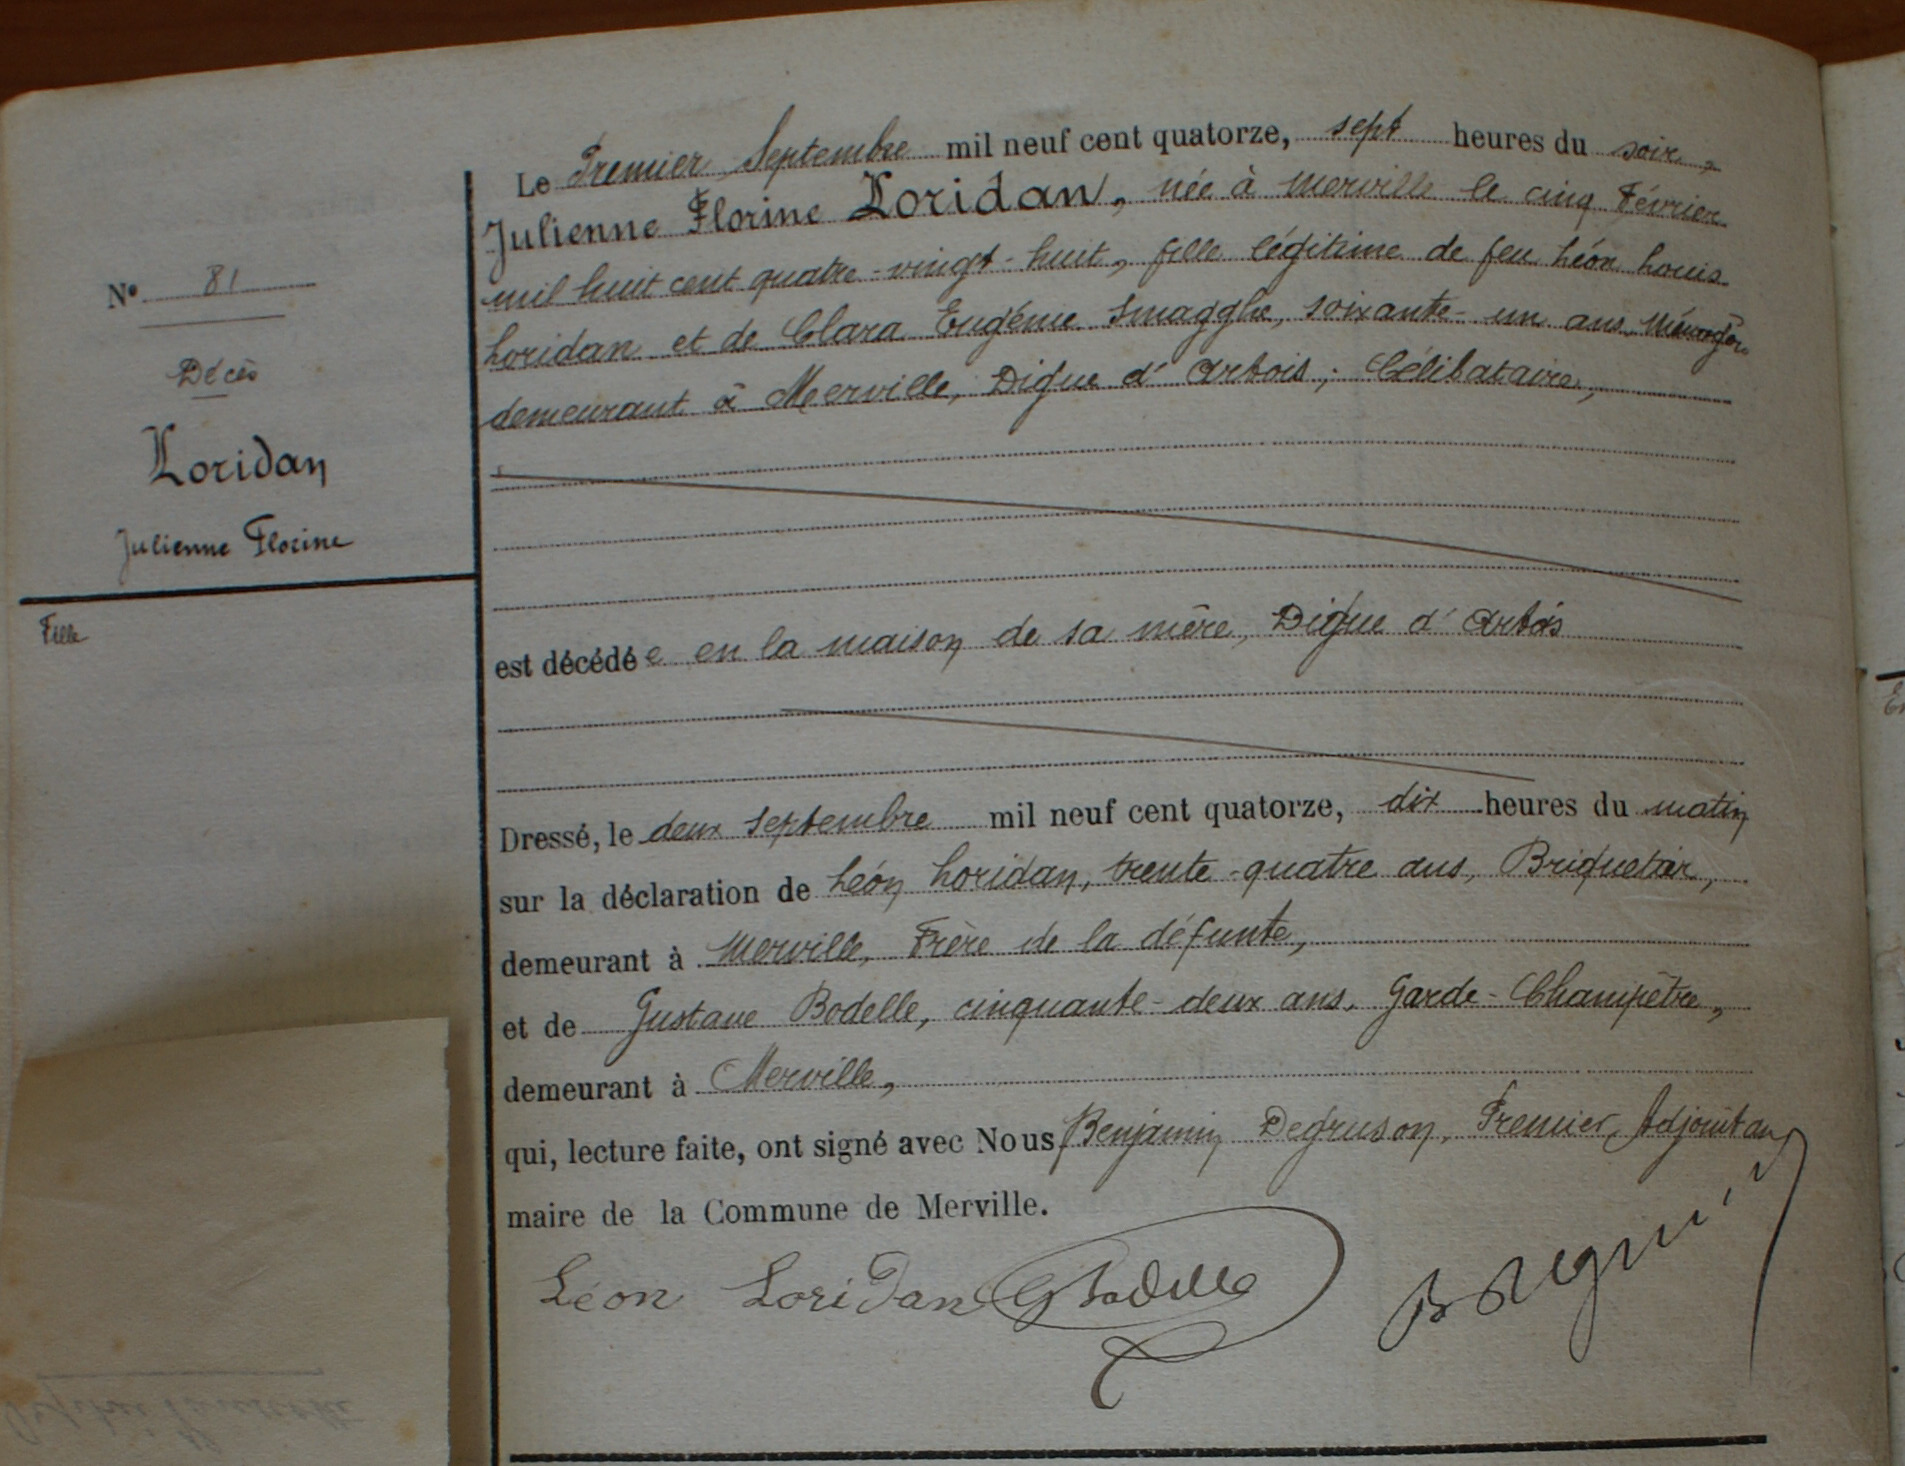 N° 81
Décès
Loridan
Julienne Florine
Fille
Le Premier Septembre mil neuf cent quatorze, sept heures du soir,
Julienne Florine Loridan, née à Merville le cinq Février
mil huit cent quatre-vingt-huit, fille légitime de feu Léon Louis
Loridan et de Clara Eugénie Smagghe, soixante-un ans, Ménagère
demeurant à Merville, Digue d'Artois; Célibataire,
est décédée en la maison de sa mère, Digue d'Artois
Dressé, le deux Septembre mil neuf cent quatorze, dix heures du matin
sur la déclaration de Léon Loridan, trente-quatre ans, Briquetier,
demeurant à Merville, Frère de la défunte,
et de Gustave Bodelle, cinquante-deux ans, Garde-Champêtre,
demeurant à Merville,
qui, lecture faite, ont signé avec Nous Benjamin Degruson, Premier Adjoint au
maire de la Commune de Merville.
Léon Loridan G Bodelle